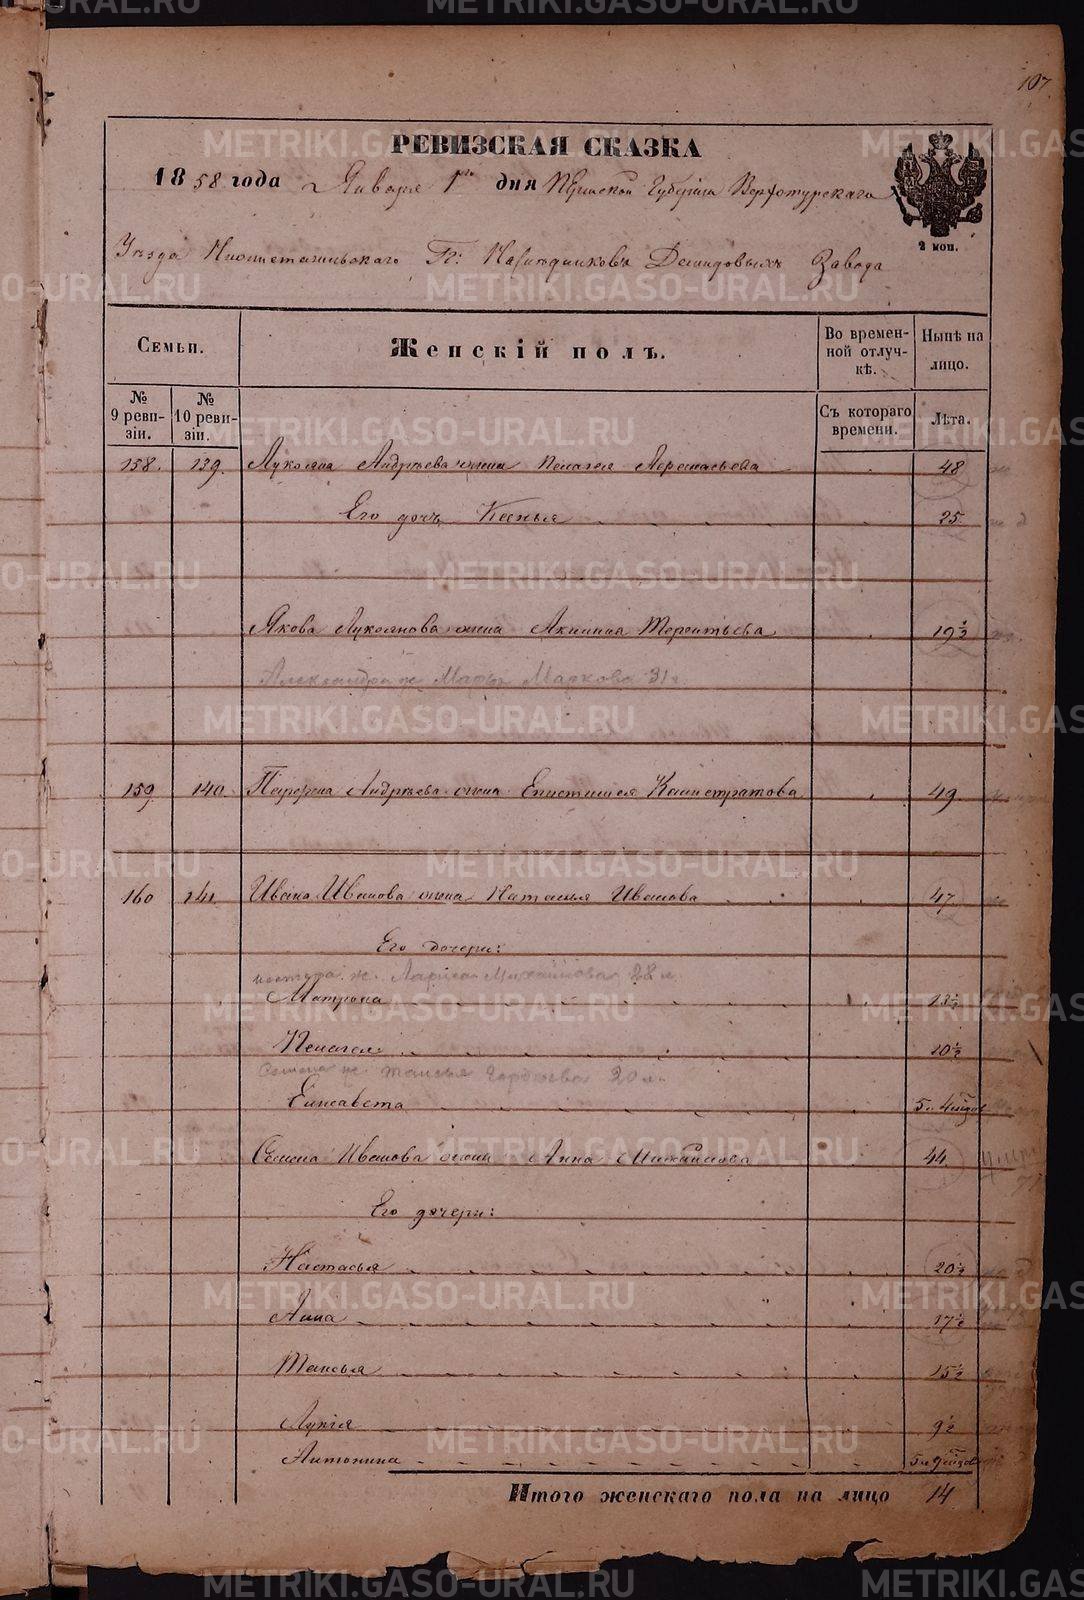 107
РЕВИЗСКАЯ СКАЗКА
1858 года Января 1го дня Пермской Губернiи Верхотурскаго
2 коп.
Уѣзда Нижнетагильскаго Гг: Наслѣдниковъ Демидовыхъ Завода
Семьи.
Женскій полъ.
Во временной отлучкѣ.
Нынѣ на лицо.
№ 9 ревизіи.
№ 10 ревизіи.
Съ котораго времени.
Лѣта.
158. 139. Лукояна Андрѣева жена Пелагея Аѳанасьева 48
Его дочь Ксенья 25
Якова Лукоянова жена Акилина Терентьева 19½
Александра ж Марья Маркова 31 г.
159 140. Андрѣева жена Епистимея Калистратова 49
160 141. Ивана Иванова жена Наталья Иванова 47
Его дочери:
нестера ж. Лариса Михайлова 28 л.
Матрона 13½
Пелагея 10½
Семена ж. Таисья Гордѣева 20 л.
Елисавета 5 л 4
Семена Иванова жена Анна Михайлова 44
Его дочери:
Настасья 20½
Анна 17½
Таисья 15½
Лукія 9½
Антонина 5 л 9
Итого женскаго пола на лицо 14
METRIKI.GASO-URAL.RU